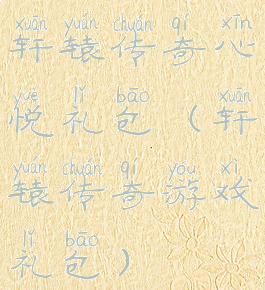 xuān yuán chuán qí xīn
轩辕传奇心
yuè lǐ bāo xuān
悦礼包（轩
yuán chuán qí yóu xì
辕传奇游戏
lǐ bāo
礼包）